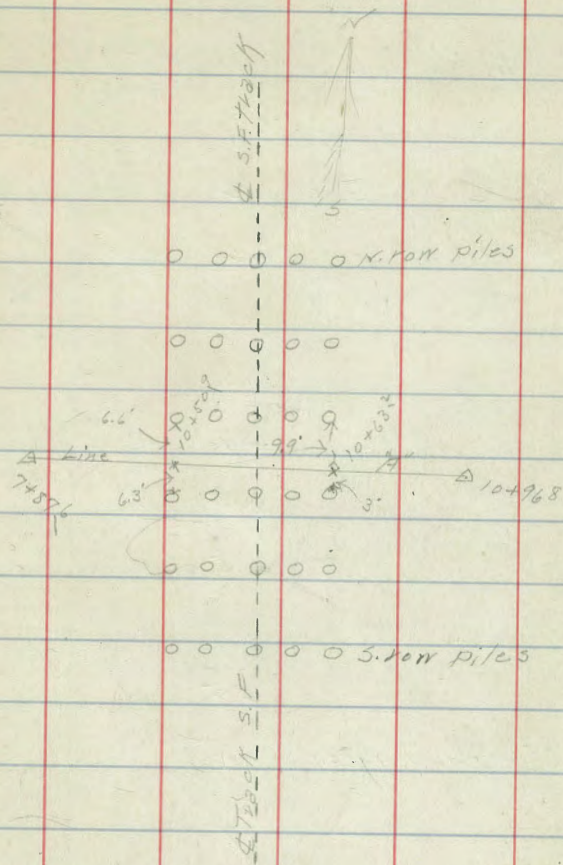 N
℄ S.F. Track
S
N. row piles
6.6'
10+50.9
9.9'
10+63.2
Line "A"
7+57.6
6.3'
3'
10+96.8
S. row piles
℄ Track S.F